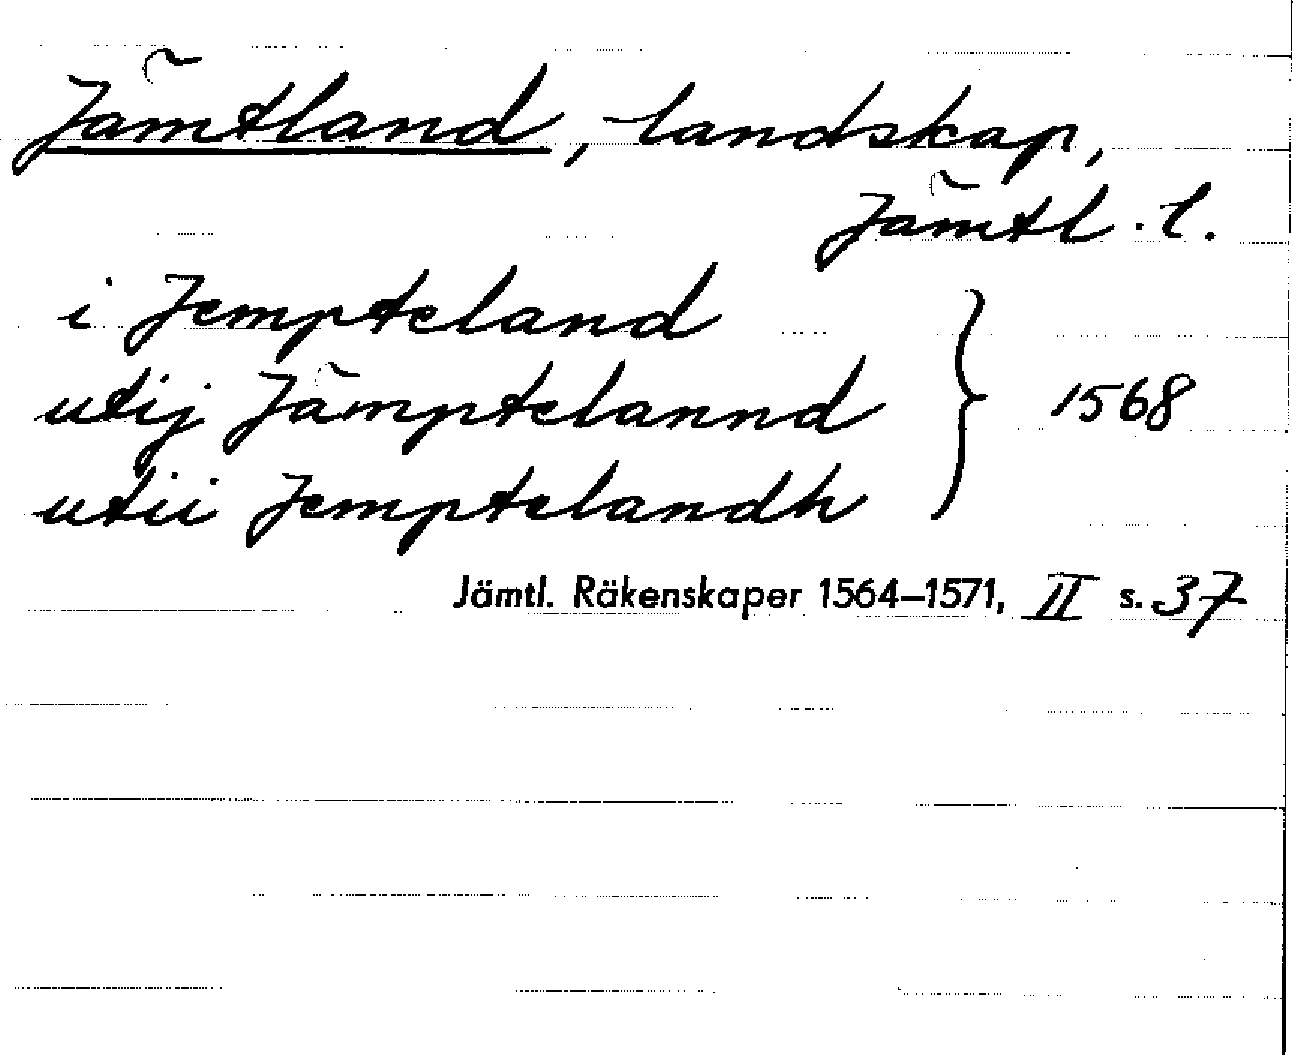 Jämtland, landskap,
Jämtl. l.
i Jempteland
utij Jämptelannd
utii Jemptelandh
1568
Jämtl. Räkenskaper 1564–1571, II s. 37